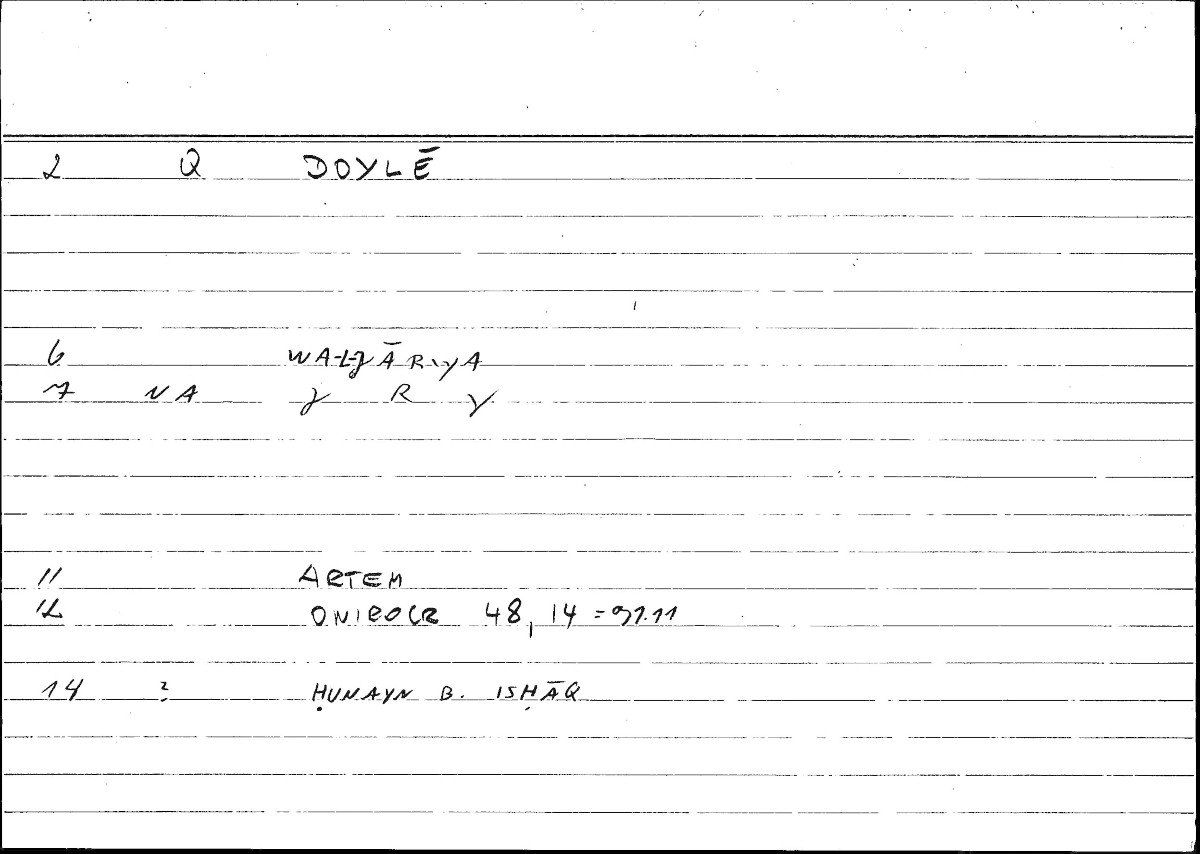 2 Q DOYLĒ
6 WA-L-JĀRIYA
7 NA J R Y
11 ARTEM
12 ONIROCR 48,14 = 91.11
14 ? ḤUNAYN B. ISḤĀQ